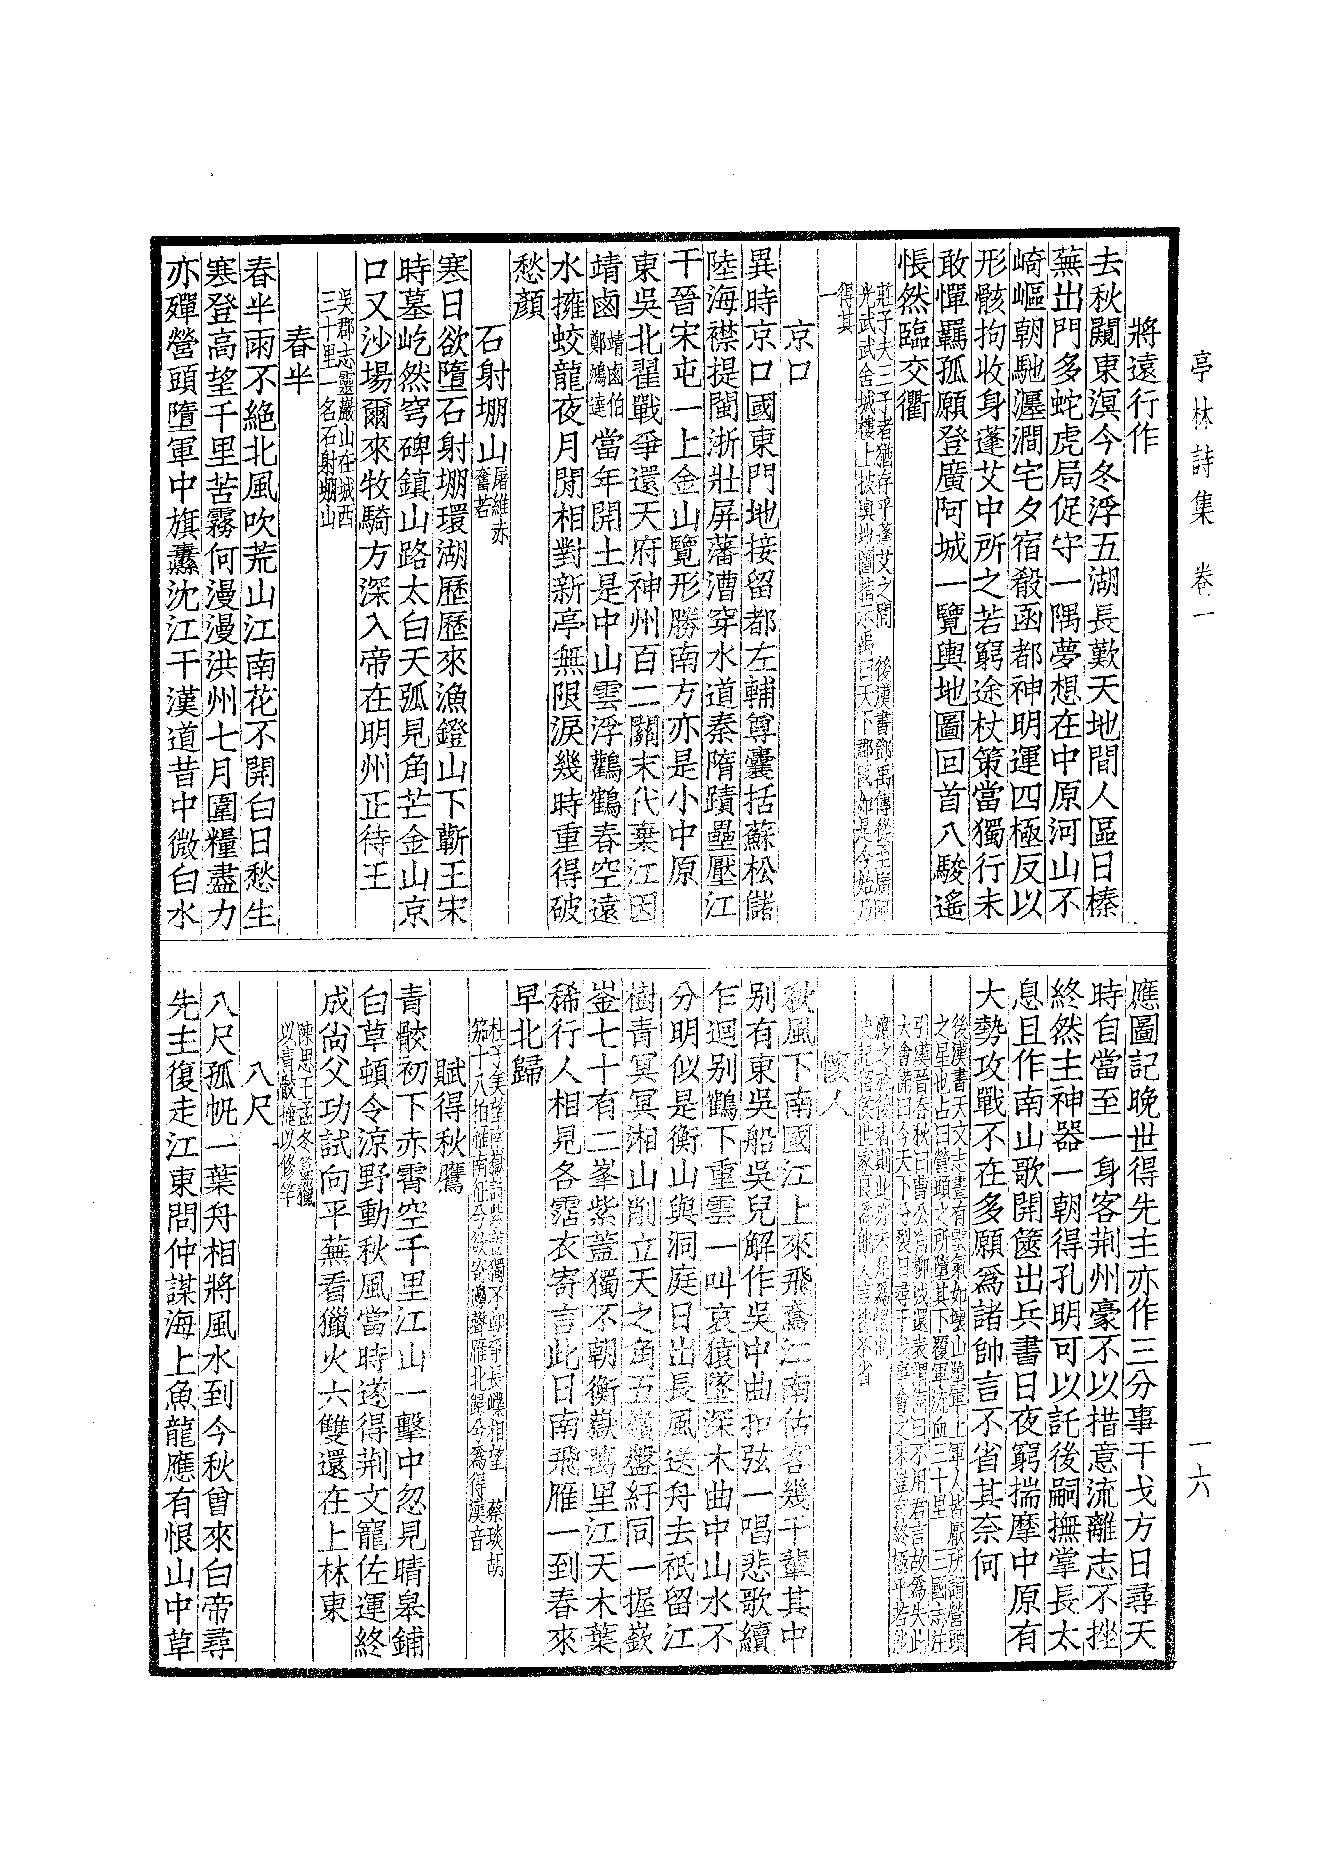 亭林詩集　卷一
一六
將遠行作
去秋闚東溟今冬浮五湖長歎天地間人區日榛
蕪出門多蛇虎局促守一隅夢想在中原河山不
崎嶇朝馳瀍澗宅夕宿殽函都神明運四極反以
形骸拘收身蓬艾中所之若窮途杖策當獨行未
敢憚羈孤願登廣阿城一覽輿地圖回首八駿遙
悵然臨交衢
莊子夫三子者猶存乎蓬艾之間　後漢書鄧禹傳從至廣阿
光武舍城樓上披輿地圖指示禹曰天下郡國如是今始乃
得其
一
京口
異時京口國東門地接留都左輔尊囊括蘇松儲
陸海襟提閩浙壯屏藩漕穿水道秦隋蹟壘壓江
干晉宋屯一上金山覽形勝南方亦是小中原
東吳北翟戰爭還天府神州百二關末代棄江因
靖鹵靖鹵伯鄭鴻逵當年開土是中山雲浮鸛鶴春空遠
水擁蛟龍夜月閒相對新亭無限淚幾時重得破
愁顏
石射堋山屠維赤奮若
寒日欲墮石射堋環湖歷歷來漁鐙山下蘄王宋
時墓屹然穹碑鎮山路太白天弧見角芒金山京
口又沙場爾來牧騎方深入帝在明州正待王
吳郡志靈巖山在城西
三十里一名石射堋山
春半
春半雨不絕北風吹荒山江南花不開白日愁生
寒登高望千里苦霧何漫漫洪州七月圍糧盡力
亦殫營頭墮軍中旗纛沈江干漢道昔中微白水
應圖記晚世得先主亦作三分事干戈方日尋天
時自當至一身客荆州豪不以措意流離志不挫
終然主神器一朝得孔明可以託後嗣撫掌長太
息且作南山歌開篋出兵書日夜窮揣摩中原有
大勢攻戰不在多願爲諸帥言不省其奈何
後漢書天文志晝有雲氣如壞山墮軍上軍人皆厭所謂營頭
之星也占曰營頭之所墮其下覆軍流血三十里　三國志注
引漢晉春秋曰曹公
懷人
秋風下南國江上來飛鳶江南估客幾千輩其中
別有東吳船吳兒解作吳中曲扣弦一唱悲歌續
乍迴別鶴下重雲一叫哀猿墜深木曲中山水不
分明似是衡山與洞庭日出長風送舟去祇留江
樹青冥冥湘山削立天之角五嶺盤紆同一握嶔
崟七十有二峯紫蓋獨不朝衡嶽萬里江天木葉
稀行人相見各霑衣寄言此日南飛雁一到春來
早北歸
杜子美望南嶽詩紫蓋獨不朝爭長嶫相望　蔡琰胡
笳十八拍雁南征兮欲寄邊聲雁北歸兮爲得漢音
賦得秋鷹
青骹初下赤霄空千里江山一擊中忽見晴皋鋪
白草頓令涼野動秋風當時遂得荆文寵佐運終
成尙父功試向平蕪看獵火六雙還在上林東
陳思王孟冬篇獵
以青骹掩以修竿
八尺
八尺孤帆一葉舟相將風水到今秋曾來白帝尋
先主復走江東問仲謀海上魚龍應有恨山中草